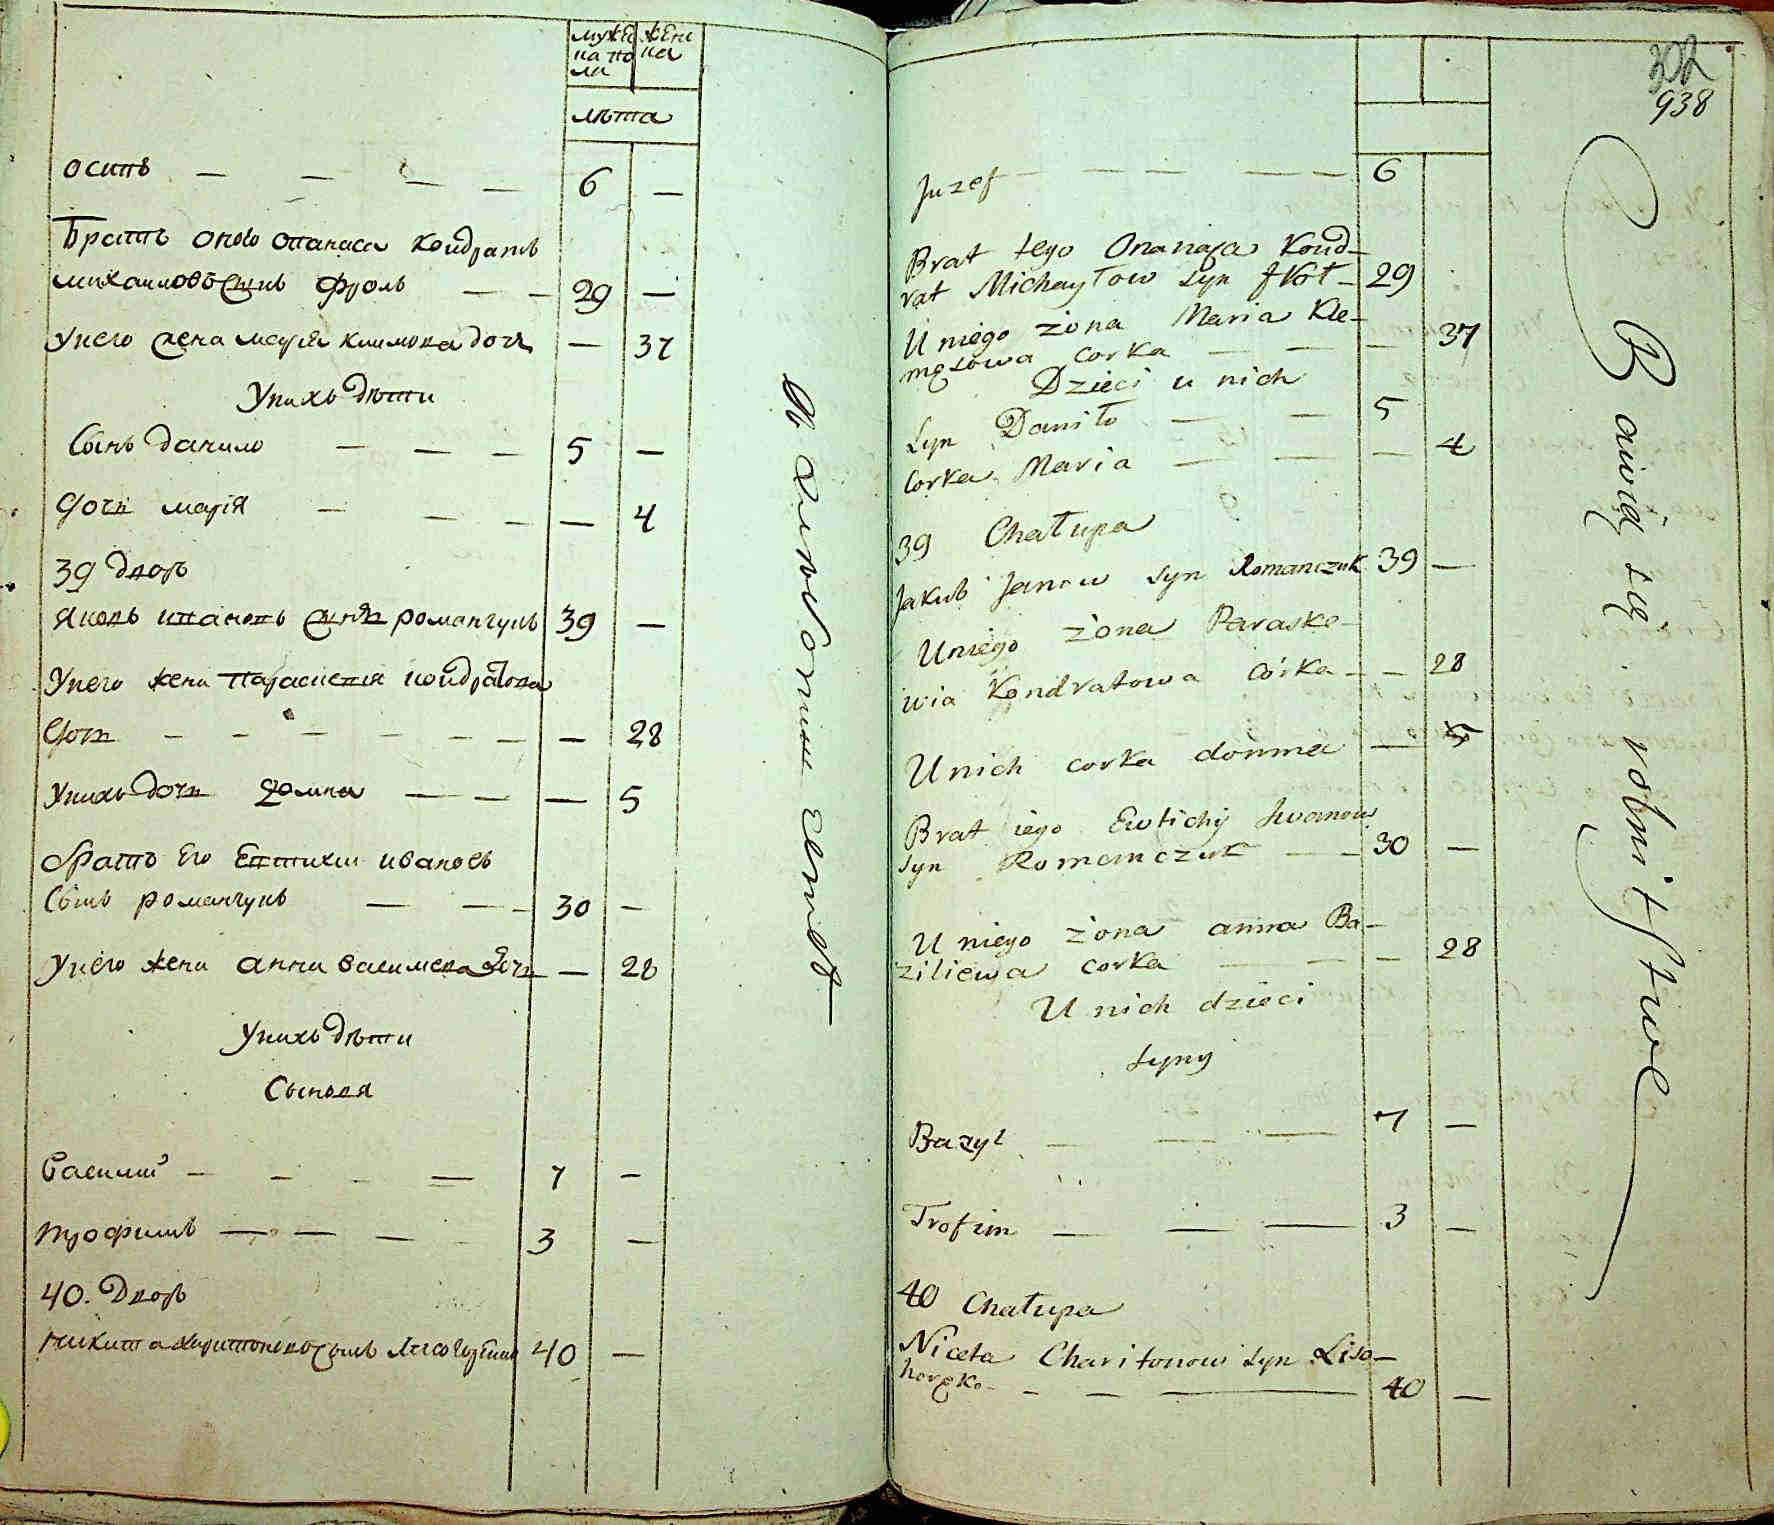 мужеска пола
женска
лѣта
осипъ — — — — 6 —
Братъ оного опанаса кондратъ
михаиловъ сынъ фролъ — — 29 —
У него жена марія климова дочь — 37
У нихъ дѣти
Сынъ данило — — — 5 —
дочь марія — — — — 4
39 дворъ
Яковъ ивановъ сынъ романчукъ 39 —
У него жена параскевія кондратова
дочь — — — — — — — 28
У нихъ дочь домна — — — 5
братъ его евтихи ивановъ
сынъ романчукъ — — — 30 —
У него жена анна василиева дочь — 28
У нихъ дѣти
Сыновя
Василий — — — — 7 —
трофимъ — — — — 3 —
40. Дворъ
никита харитоновъ сынъ 40 —
302
938
Juzef — — — — — 6
Brat tego Onanasa Kond-
rat Michayłow syn froł — 29
U niego żona Maria Kle-
mętowa corka — — — 37
Dzieci u nich
syn Daniło — — 5
corka Maria — — — 4
39 Chałupa
Jakub Janow syn Romanczuk 39 —
U niego żona Paraske-
wia Kondratowa córka — — 28
U nich corka domna — 5
Brat iego Ewtichij Iwanow
syn Romanczuk — — 30 —
U niego żona anna Ba-
ziliewa corka — — — 28
U nich dzieci
syny
Bazyl — — — 7 —
Trofim — — — 3 —
40 Chałupa
Niceta Charitonow syn Liso-
horsko — — — 40 —
Bawią się rolnitstwe